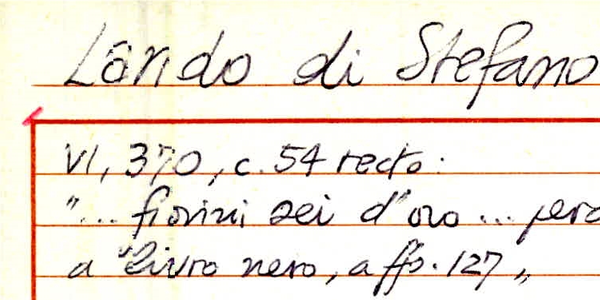 Lando di Stefano
VI, 370, c. 54 recto:
"... fiorini sei d'oro ... pero
a livro nero, a ffo. 127 "